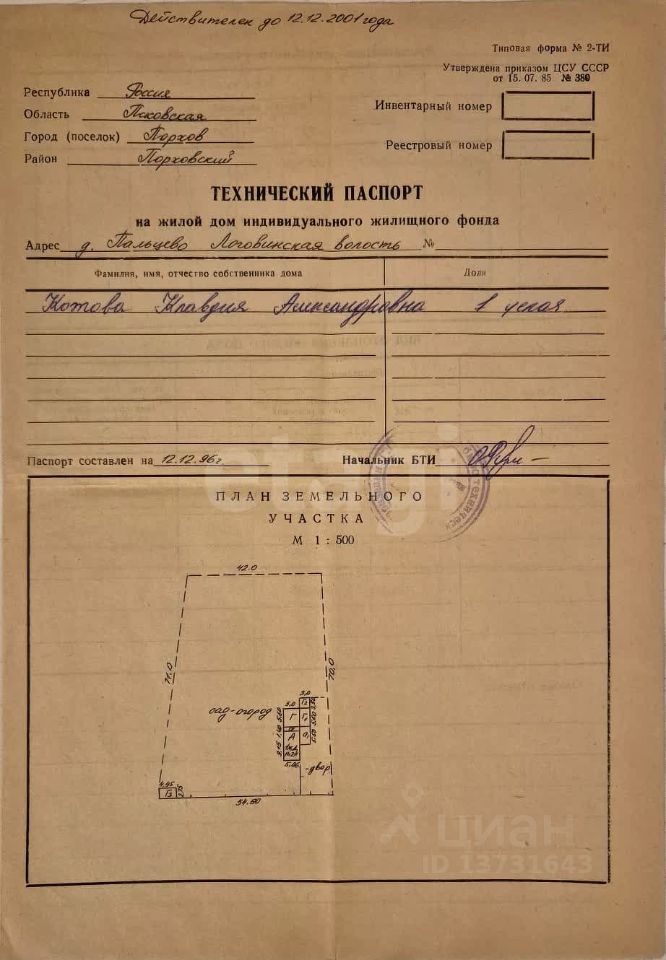 Действителен до 12.12.2001 года
Типовая форма № 2-ТИ
Утверждена приказом ЦСУ СССР
от 15. 07. 85 № 380
Республика Россия
Область Псковская
Город (поселок) Порхов
Район Порховский
Инвентарный номер
Реестровый номер
ТЕХНИЧЕСКИЙ ПАСПОРТ
на жилой дом индивидуального жилищного фонда
Адрес д. Пальцево Логовинская волость №
Фамилия, имя, отчество собственника дома Доли
Котова Клавдия Александровна 1 целая
Паспорт составлен на 12.12.96г. Начальник БТИ
etagi
ПЛАН ЗЕМЕЛЬНОГО
УЧАСТКА
М 1 : 500
42.0
71.0
70.0
сад-огород
3.0
Г
А
5.06
двор
4.45
Г3
54.60
циан
ID 13731643